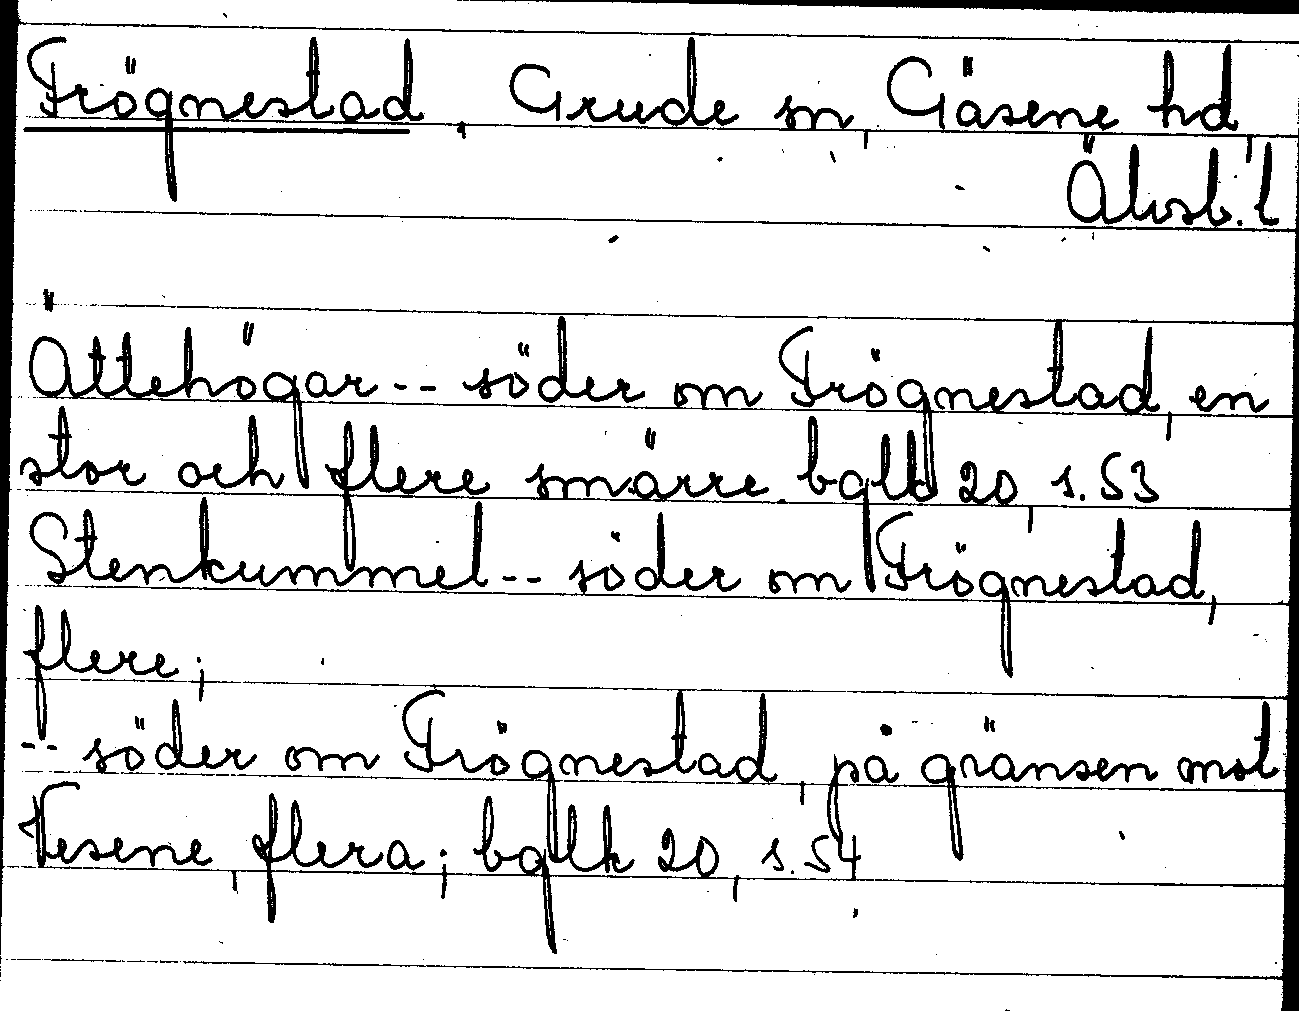 Frögnestad, Grude sn, Gäsene hd,
Älvsb. l
Ättehögar -- söder om Frögnestad, en
stor och flere smärre. bglk 20, s. 53
Stenkummel -- söder om Frögnestad,
flere;
-- söder om Frögnestad, på gränsen mot
Vesene, flera; bglk 20, s. 54